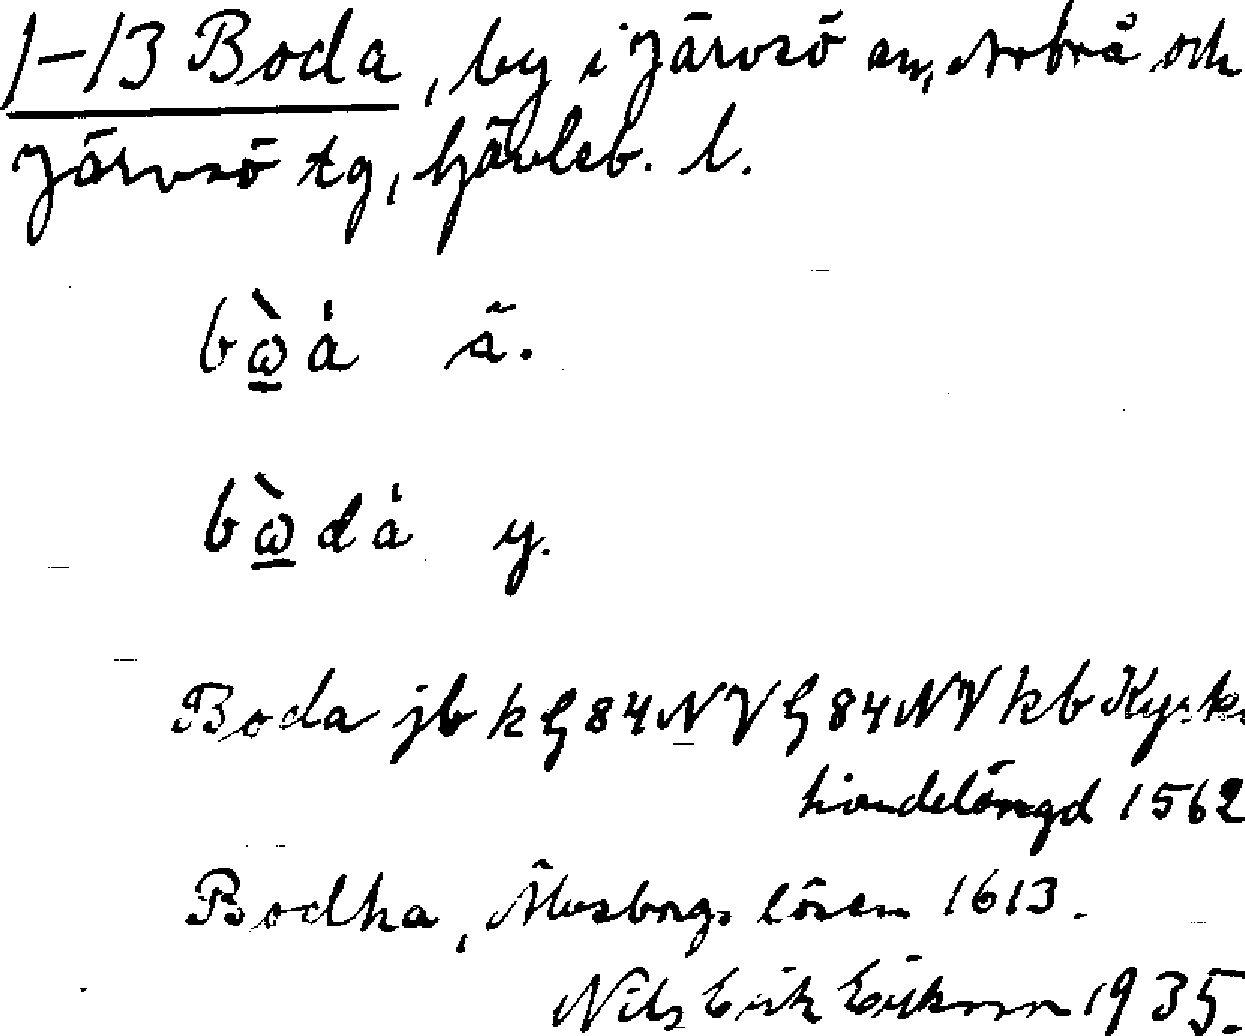 1-13 Boda, by i Järvsö sn, Arbrå och
Järvsö tg, Gävleb. l.
bὼ̲ȧ ä.
bὼ̲dȧ y.
Boda jb k G 84 NV G 84 NV kb Kyrk
händelängd 1562
Bodha, Älvsborgs lösen 1613.
Nils Erik Eriksson 1935.